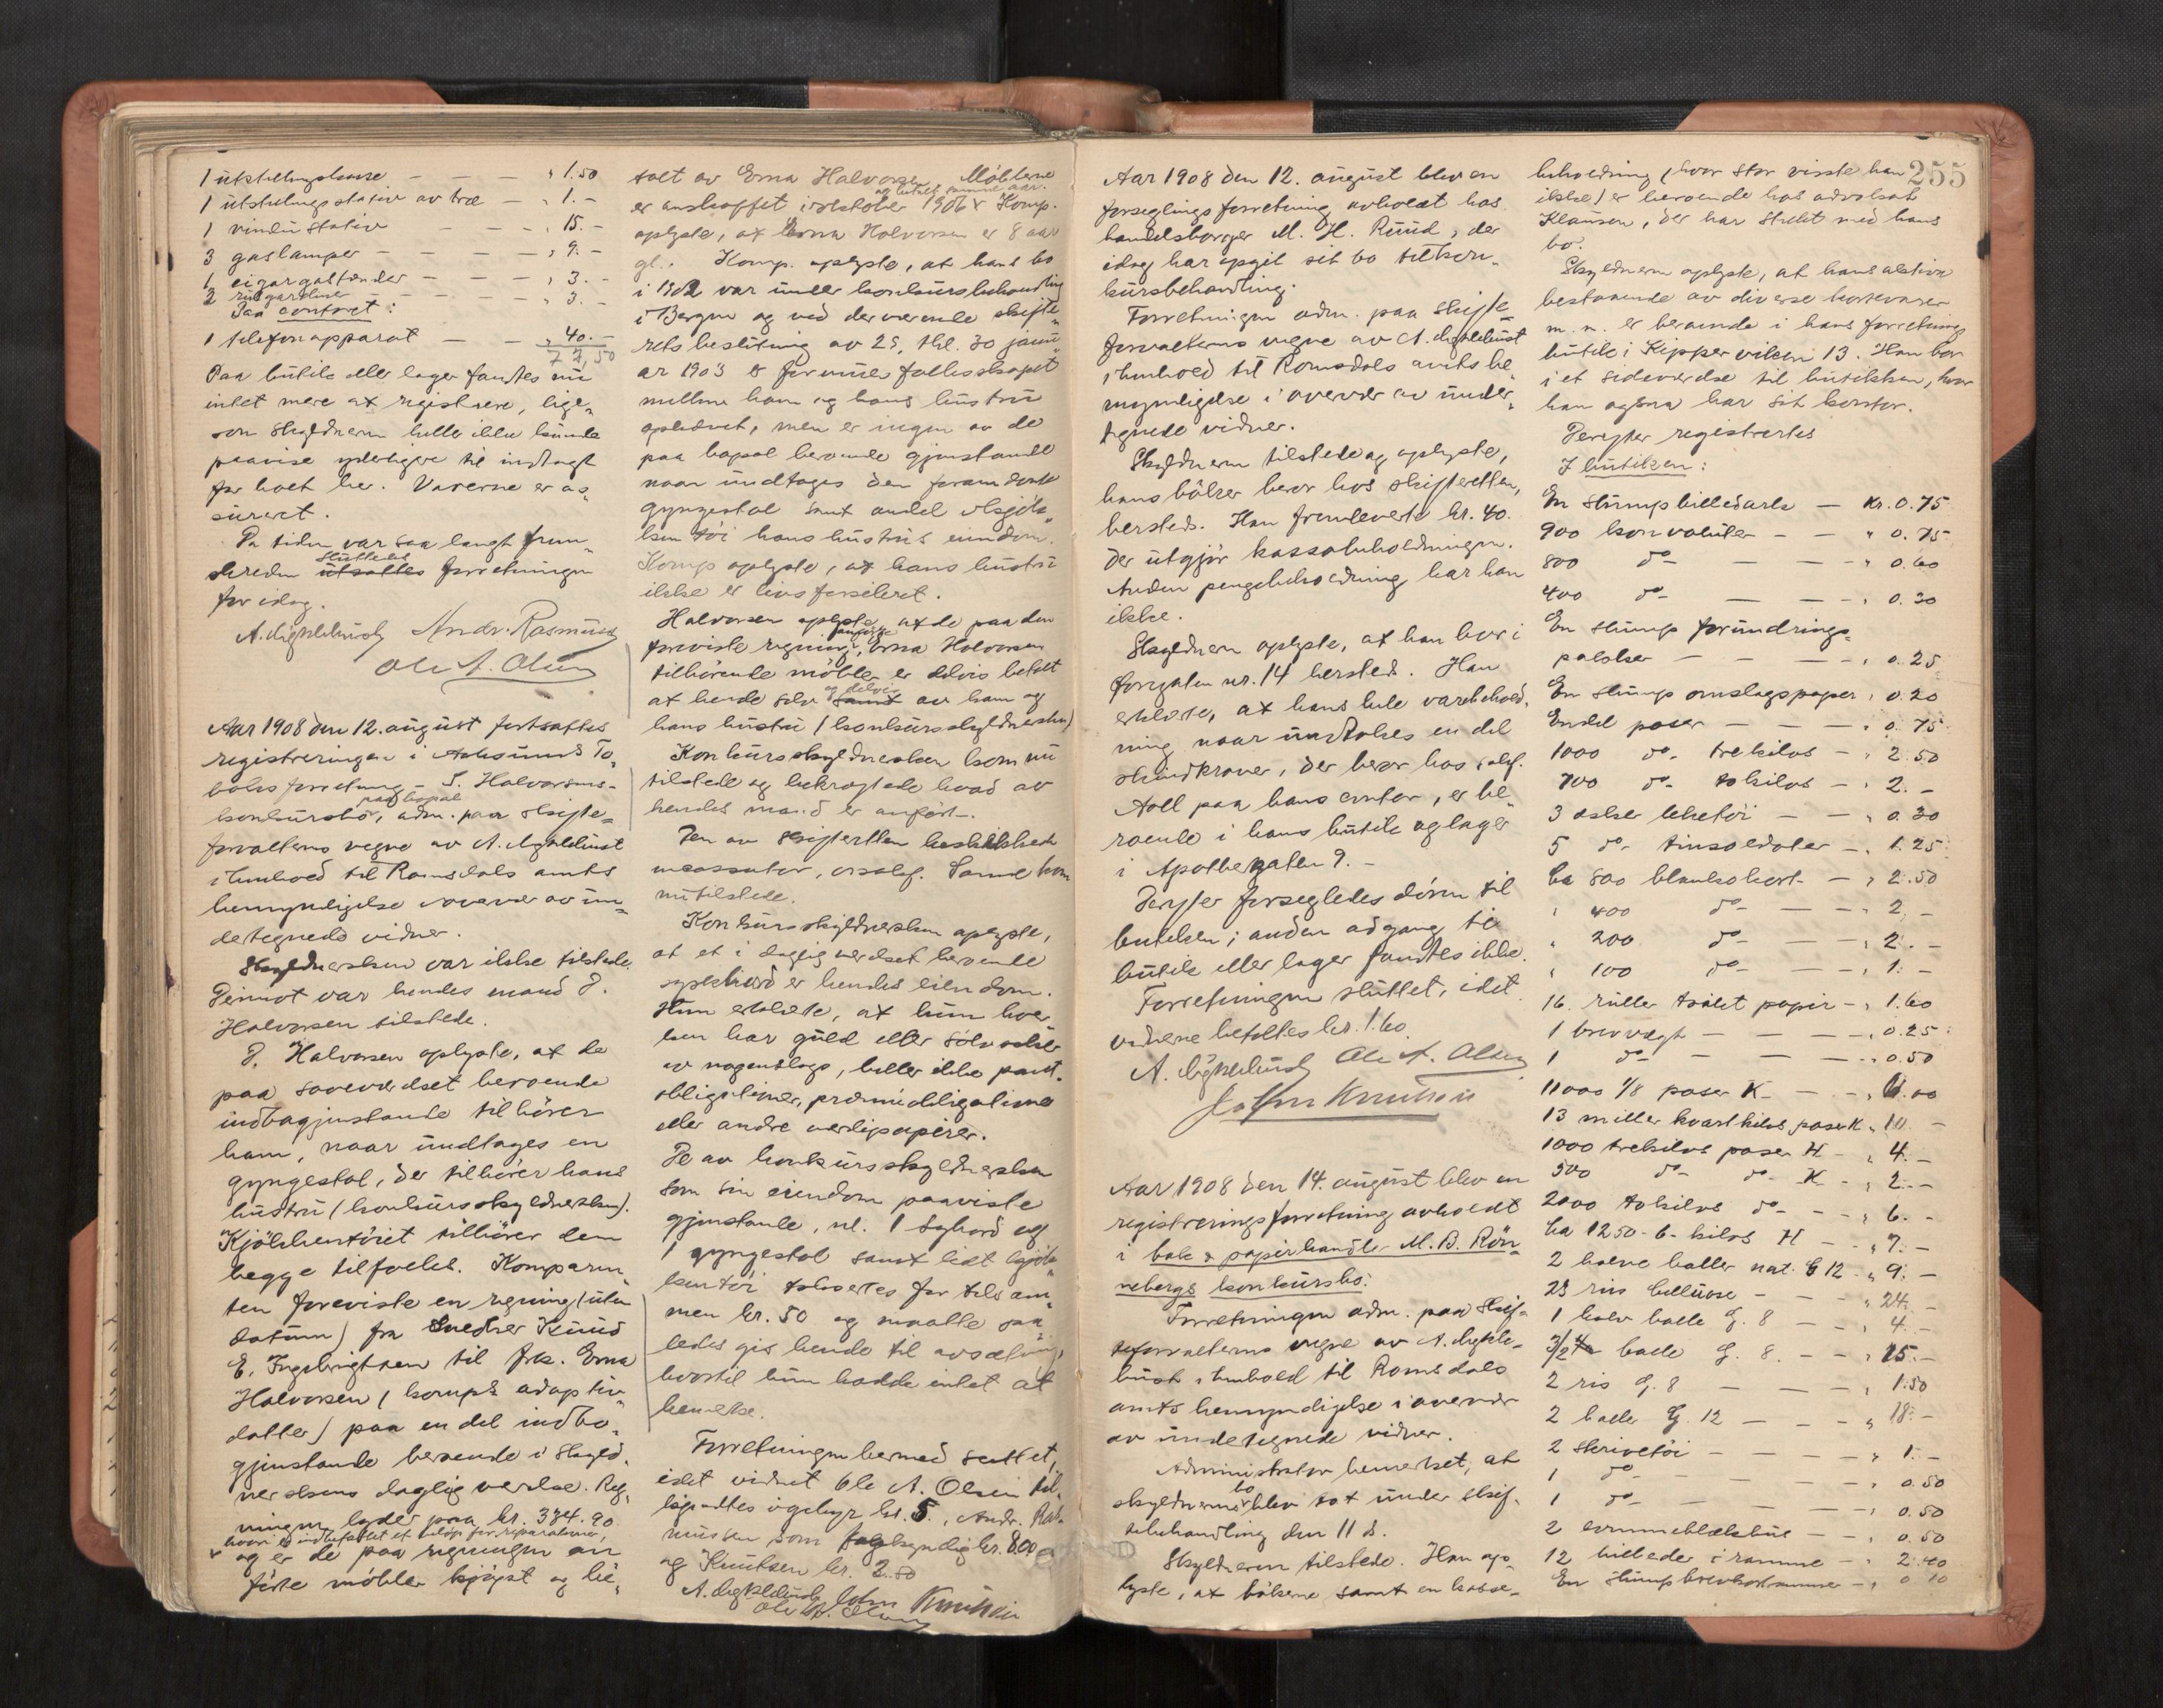 1 utstillingskasse — — " 1.50
1 utstillingsstativ av træ — " 1.-
1 vindustativ — — " 15.-
3 gaslamper — — — " 9.-
1 cigargastænder — — " 3.-
2 rulgardiner — — " 3.-
Paa contoret:
1 telefonapparat — — " 40.-
77,50
Paa butik eller lager fantes nu
intet mere at registrere, lige-
som skyldneren heller ikke kunde
paavise yderligere til indtægt
for boet her. Varerne er as-
sureret.
Da tiden var saa langt frem-
skreden sluttedes utsattes forretningen
for idag.
A. Andr. Rasmussen
Ole A. Olsen
Aar 1908 den 12. august fortsattes
registreringen i Aalesunds To-
baksforretning J. Halvorsens
konkursbo, paa bopæl adm. paa skifte-
forvalterens vegne av A.
i henhold til Romsdals amts
bemyndigelse i overvær av un-
dertegnede vidner.
Skyldnersken var ikke tilstede.
Derimot var hendes mand P.
Halvorsen tilstede.
P. Halvorsen oplyste, at de
paa soveværelset beroende
indbogjenstande tilhører
ham, naar undtages en
gyngestol, der tilhører hans
hustru (konkursskyldnersken).
Kjøkkentøiet tilhører dem
begge tilfælles. Komparen-
ten foreviste en regning (uten
datum) fra Snedker Knud
E. Ingebrigtsen til frk. Erna
Halvorsen (komp.s adoptiv-
datter) paa en del indbo-
gjenstande beroende i Skyld-
nerskens daglig værelse. Reg-
ningen lyder paa kr. 384.90
hvori er indbefattet et beløp for reparationer,
og er de paa regningen an-
førte møbler kjøpt og be-
talt av Erna Halvorsen. Møblerne
er anskaffet i oktober 1906 og betalt samme aar. Komp.
oplyste, at Erna Halvorsen er 8 aar
gl. Komp. oplyste, at hans bo
i 1902 var under konkursbehandling
i Bergen og ved derværende skifte-
rets beslutning av 25, thl. 30 janu-
ar 1903 er formuesfællesskapet
mellem ham og hans hustru
ophævet, men er ingen av de
paa bopæl beroende gjenstande
naar undtages den foran
gyngestol samt andel i kjøk-
kentøi hans hustrus eiendom.
Komp oplyste, at hans hustru
ikke er livsforsikret.
Halvorsen oplyste, at de paa den
foreviste regning anførte Erna Halvorsen
tilhørende møbler er delvis betalt
at hende selv og delvis samt av ham og
hans hustru (konkursskyldnersken)
Konkursskyldnersken kom nu
tilstede og bekræftede hvad av
hendes mand er anført.
Den av skifteretten beskikkede
incassator, orsakf. Sanne kom
nu tilstede.
Konkursskyldnersken oplyste,
at et i daglig værelset beroende
sybord er hendes eiendom.
Hun erklærte, at hun hver-
ken har guld eller sølvsaker
av nogenslags, heller ikke pant-
obligationer, præmieobligationer
eller andre værdipapirer.
De av konkursskyldnersken
som sin eiendom paaviste
gjenstande, nl. 1 sybord og
1 gyngestol samt lidt kjøk-
kentøi takseres for tilsam-
men kr. 50 og maatte saa-
ledes gis hende til avsætning,
hvortil hun hadde intet at
bemerke.
Forretningen hermed sluttet,
idet vidnet Ole A. Olsen til-
kjendtes i gebyr kr. 5., Andr. Ras-
mussen som fagkyndig kr. 8.00
og Knutsen kr. 2.50
A. John Knutsen
Ole A. Olsen
Aar 1908 den 12. august blev en
forseglingsforretning avholdt hos
handelsborger M. H. Ruud, der
idag har opgit sit bo til kon-
kursbehandling.
Forretningen adm. paa skifte-
forvalterens vegne av A.
i henhold til Romsdals amts be-
myndigelse i overvær av under-
tegnede vidner.
Skyldneren tilstede og oplyste,
hans bøker beror hos skifteretten,
hersteds. Han fremleverte kr. 40.
der utgjør kassabeholdningen.
Anden pengebeholdning har han
ikke.
Skyldneren oplyste, at han bor i
gaten nr. 14 hersteds. Han
erklærte, at hans hele varebehold-
ning naar undtakes en del
skindkraver, der beror hos sakf.
Aall paa hans contor, er be-
roende i hans butik og lager
i Apothekergaten 9. -
Derefter forsegledes døren til
butikken; anden adgang til
butik eller lager fandtes ikke.
Forretningen sluttet, idet
vidnerne betaltes kr. 1.60.
A. Ole A. Olsen
John Knutsen
Aar 1908 den 14. august blev en
registreringsforretning avholdt
i bok & papirhandler M. B. Røn-
nebergs konkursbo.
Forretningen adm. paa skif-
teforvalterens vegne av A.
i henhold til Romsdals
amts bemyndigelse i overvær
av undertegnede vidner.
Administrator bemerket, at
skyldnerens bo blev tat under skif-
tebehandling den 11 d.
Skyldneren tilstede. Han op-
lyste, at bøkerne samt en kasse-
255
beholdning (hvor stor visste han
ikke) er beroende hos advokat
Klausen, der har stelt med hans
bo.
Skyldneren oplyste, at hans aktiva
bestaaende av diverse kortevarer
m. m. er beroende i hans forretnings
butik i Kipperviken 13. Han bor
i et sideværelse til butikken, hvor
han ogsaa har sit kontor.
Derefter registrertes
I butikken:
En slump billedark — kr. 0.75
900 konvolutter — — " 0.75
800 do — — " 0.60
400 do — — " 0.30
En slump forundrings-
pakker — — " 0.25
En slump omslagspapir " 0.20
Endel poser — — " 0.75
1000 do trekilos — " 2.50
700 do tokilos — " 2.-
3 esker leketøi — — " 0.30
5 do tinsoldater — " 1.25
ca 800 blankokort — " 2.50
" 400 do — — " 2.-
" 200 do — — " 2.-
" 100 do — — " 1.-
16 ruller toilet papir — " 1.60
1 brevvægt — — " 0.25
1 do — — — " 0.50
11000 1/8 poser K — — " 11.00
13 miller kvartkilos poser K " 10.-
1000 trekilos poser H — " 4.-
500 do do K — " 2.-
2000 tokilos do — — " 6.-
ca 1250 - 6 - kilos H — " 7.-
2 halve baller nat. G 12 — " 9.-
23 ris — " 24.-
1 halv balle G. 8 — — " 4.-
3/2 balle G. 8. — — " 15.-
2 ris G. 8 — — " 1.50
2 baller G. 12 — — " 18.-
2 skrivetøi — — — " 1.-
1 do — — — 0.50
1 do — — " 0.50
2 — — " 0.50
12 billeder i ramme — " 2.40
En slump — " 0 10